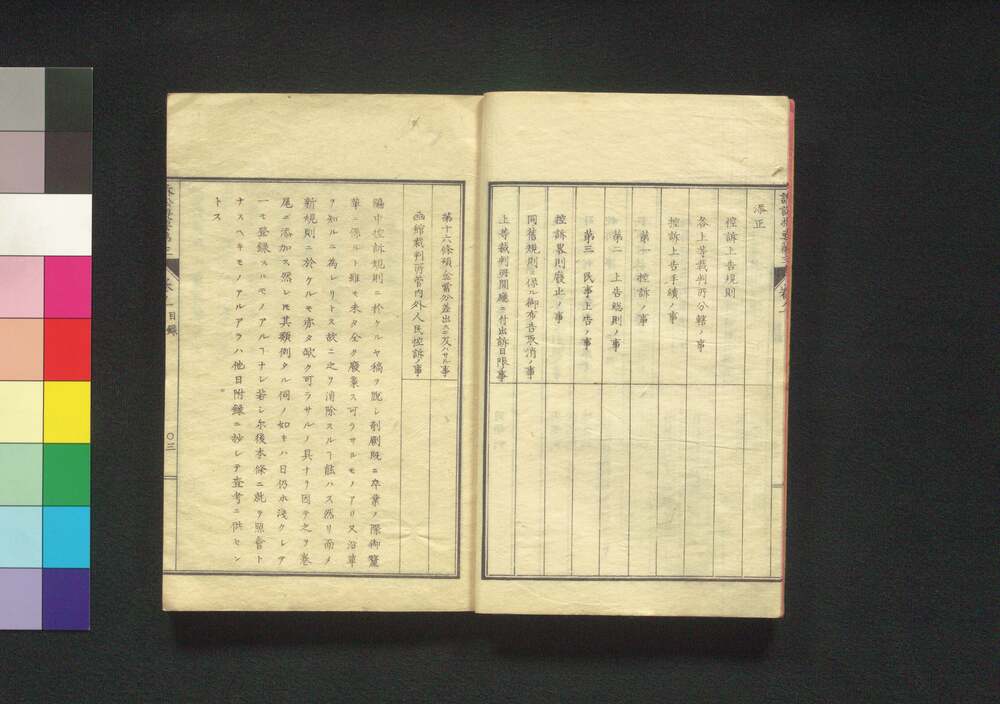 添正
控訴上告規則
各上等裁判所分轄ノ事
控訴上告手續ノ事
第一 控訴ノ事
第二 上告総則ノ事
第三 民事上告ノ事
控訴畧則廢止ノ事
同舊規則ニ係ル御布告取消ノ事
上等裁判所開廳ニ付出訴日限ノ事
第十六條預金當分差出スニ及ハサル事
函館裁判所管内外人民控訴ノ事
編中控訴規則ニ於ケルヤ稿ヲ脱シ剞劂既ニ卒業ノ際御釐
革ニ係ルト雖モ未タ全ク廢棄ス可ラサルモノアリ又沿革
ヲ知ルニ為レリトス故ニ之ヲ消除スルヿ能ハス然リ而メ
新規則ニ於ケルモ亦タ缺ク可ラサルノ具ナリ因テ之ヲ巻
尾ニ添加ス然レ𪜈其類例タル伺ノ如キハ日仍ホ淺クシテ
一モ登録スルモノアルヿナシ若シ尓後本條ニ就ヲ照會ト
ナスヘキモノアルアラハ他日附錄ニ抄シテ査考ニ供セン
トス
目錄
〇三